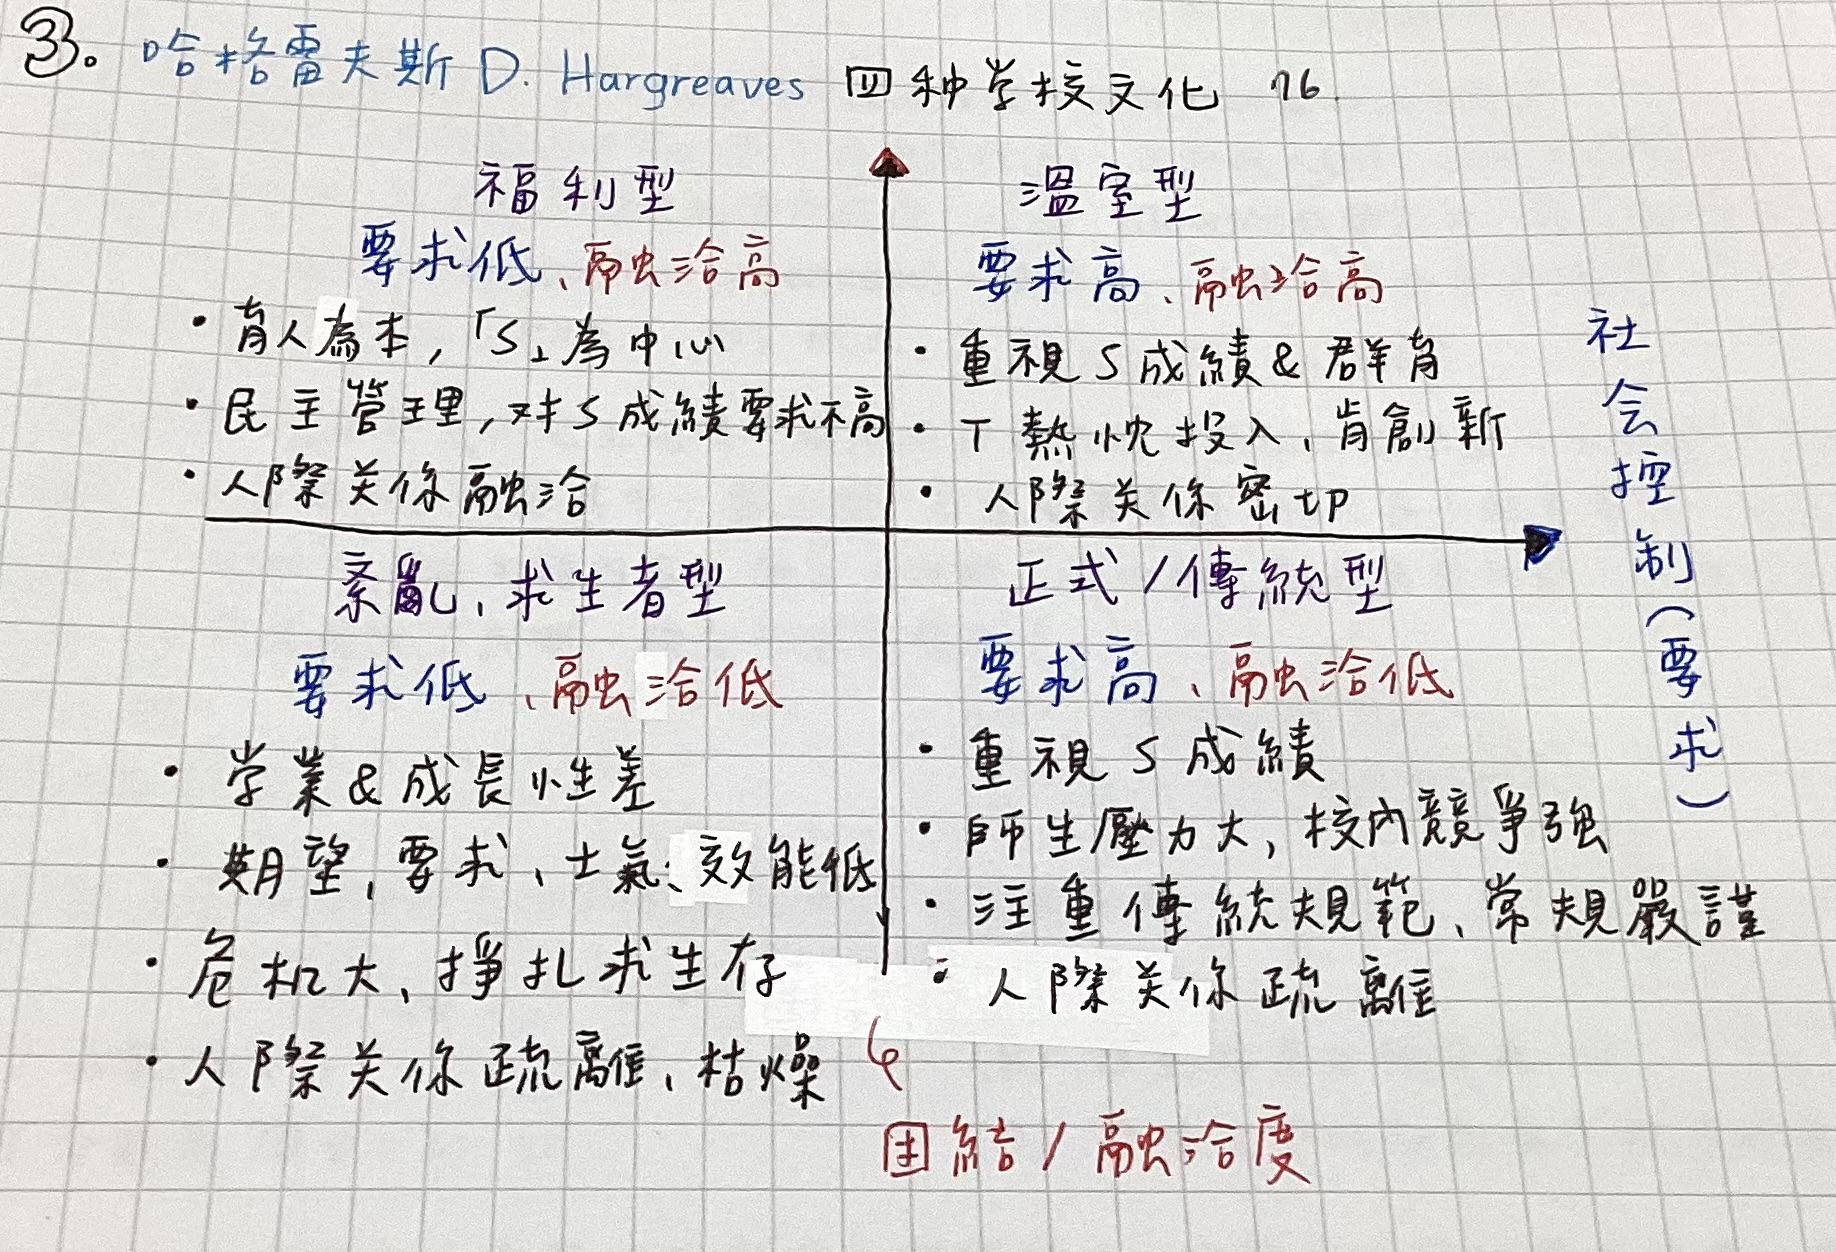 33. 哈格雷夫斯 D. Hargreaves 四种学校文化 76.
福利型
要求低、融洽高
・育人為本,「S」為中心
・民主管理,对S成績要求不高
・人際关係融洽
溫室型
要求高、融洽高
・重視S成績&群育
・T熱忱投入、肯創新
・人際关係密切
社会控制(要求)
紊亂、求生者型
要求低、融洽低
・学業&成長性差
・期望、要求、士氣、效能低
・危机大、掙扎求生存
・人際关係疏離、枯燥
正式/傳統型
要求高、融洽低
・重視S成績
・師生壓力大,校內競爭強
・注重傳統規範、常規嚴謹
・人際关係疏離
団結/融洽度